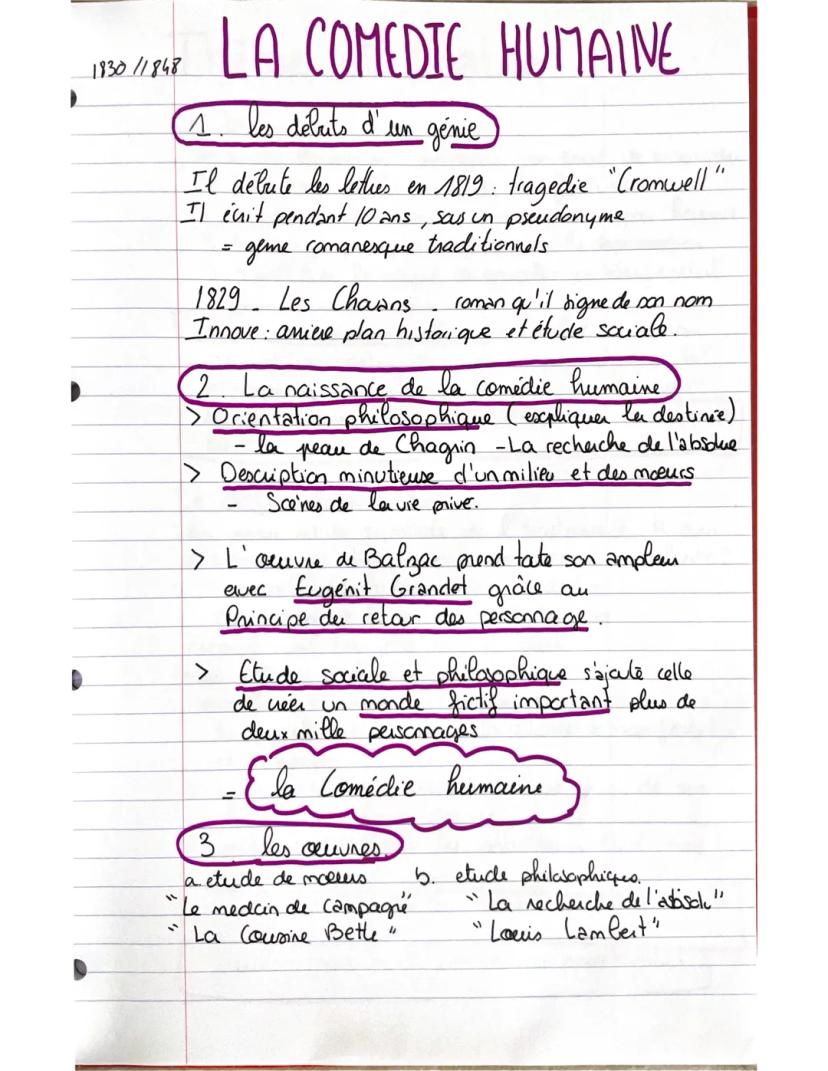 LA COMEDIE HUMAINE
1830 // 1848
1. les débuts d'un génie
Il débute les lettres en 1819 : tragedie "Cromwell"
Il écrit pendant 10 ans, sous un pseudonyme
= genre romanesque traditionnels
1829 - Les Chouans - roman qu'il signe de son nom
Innove : arriere plan historique et étude sociale.
2. La naissance de la comédie humaine
> Orientation philosophique (expliquer la destinée)
- la peau de Chagrin - La recherche de l'absolue
> Description minutieuse d'un milieu et des mœurs
- Scènes de la vie privé.
> L'œuvre de Balzac prend toute son ampleur
avec Eugénit Grandet grâce au
Principe du retour des personnage.
> Etude sociale et philosophique s'ajoute celle
de créer un monde fictif important plus de
deux mille personnages
= la Comédie humaine
3 les œuvres.
a. etude de mœurs b. etude philosophiques.
"Le medcin de campagne" "La recherche de l'absolu"
"La Cousine Bette" "Louis Lambert"